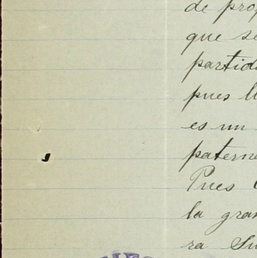 de prop
que se
partid
pues l
es un
patern
Pues
la gran
ra Su